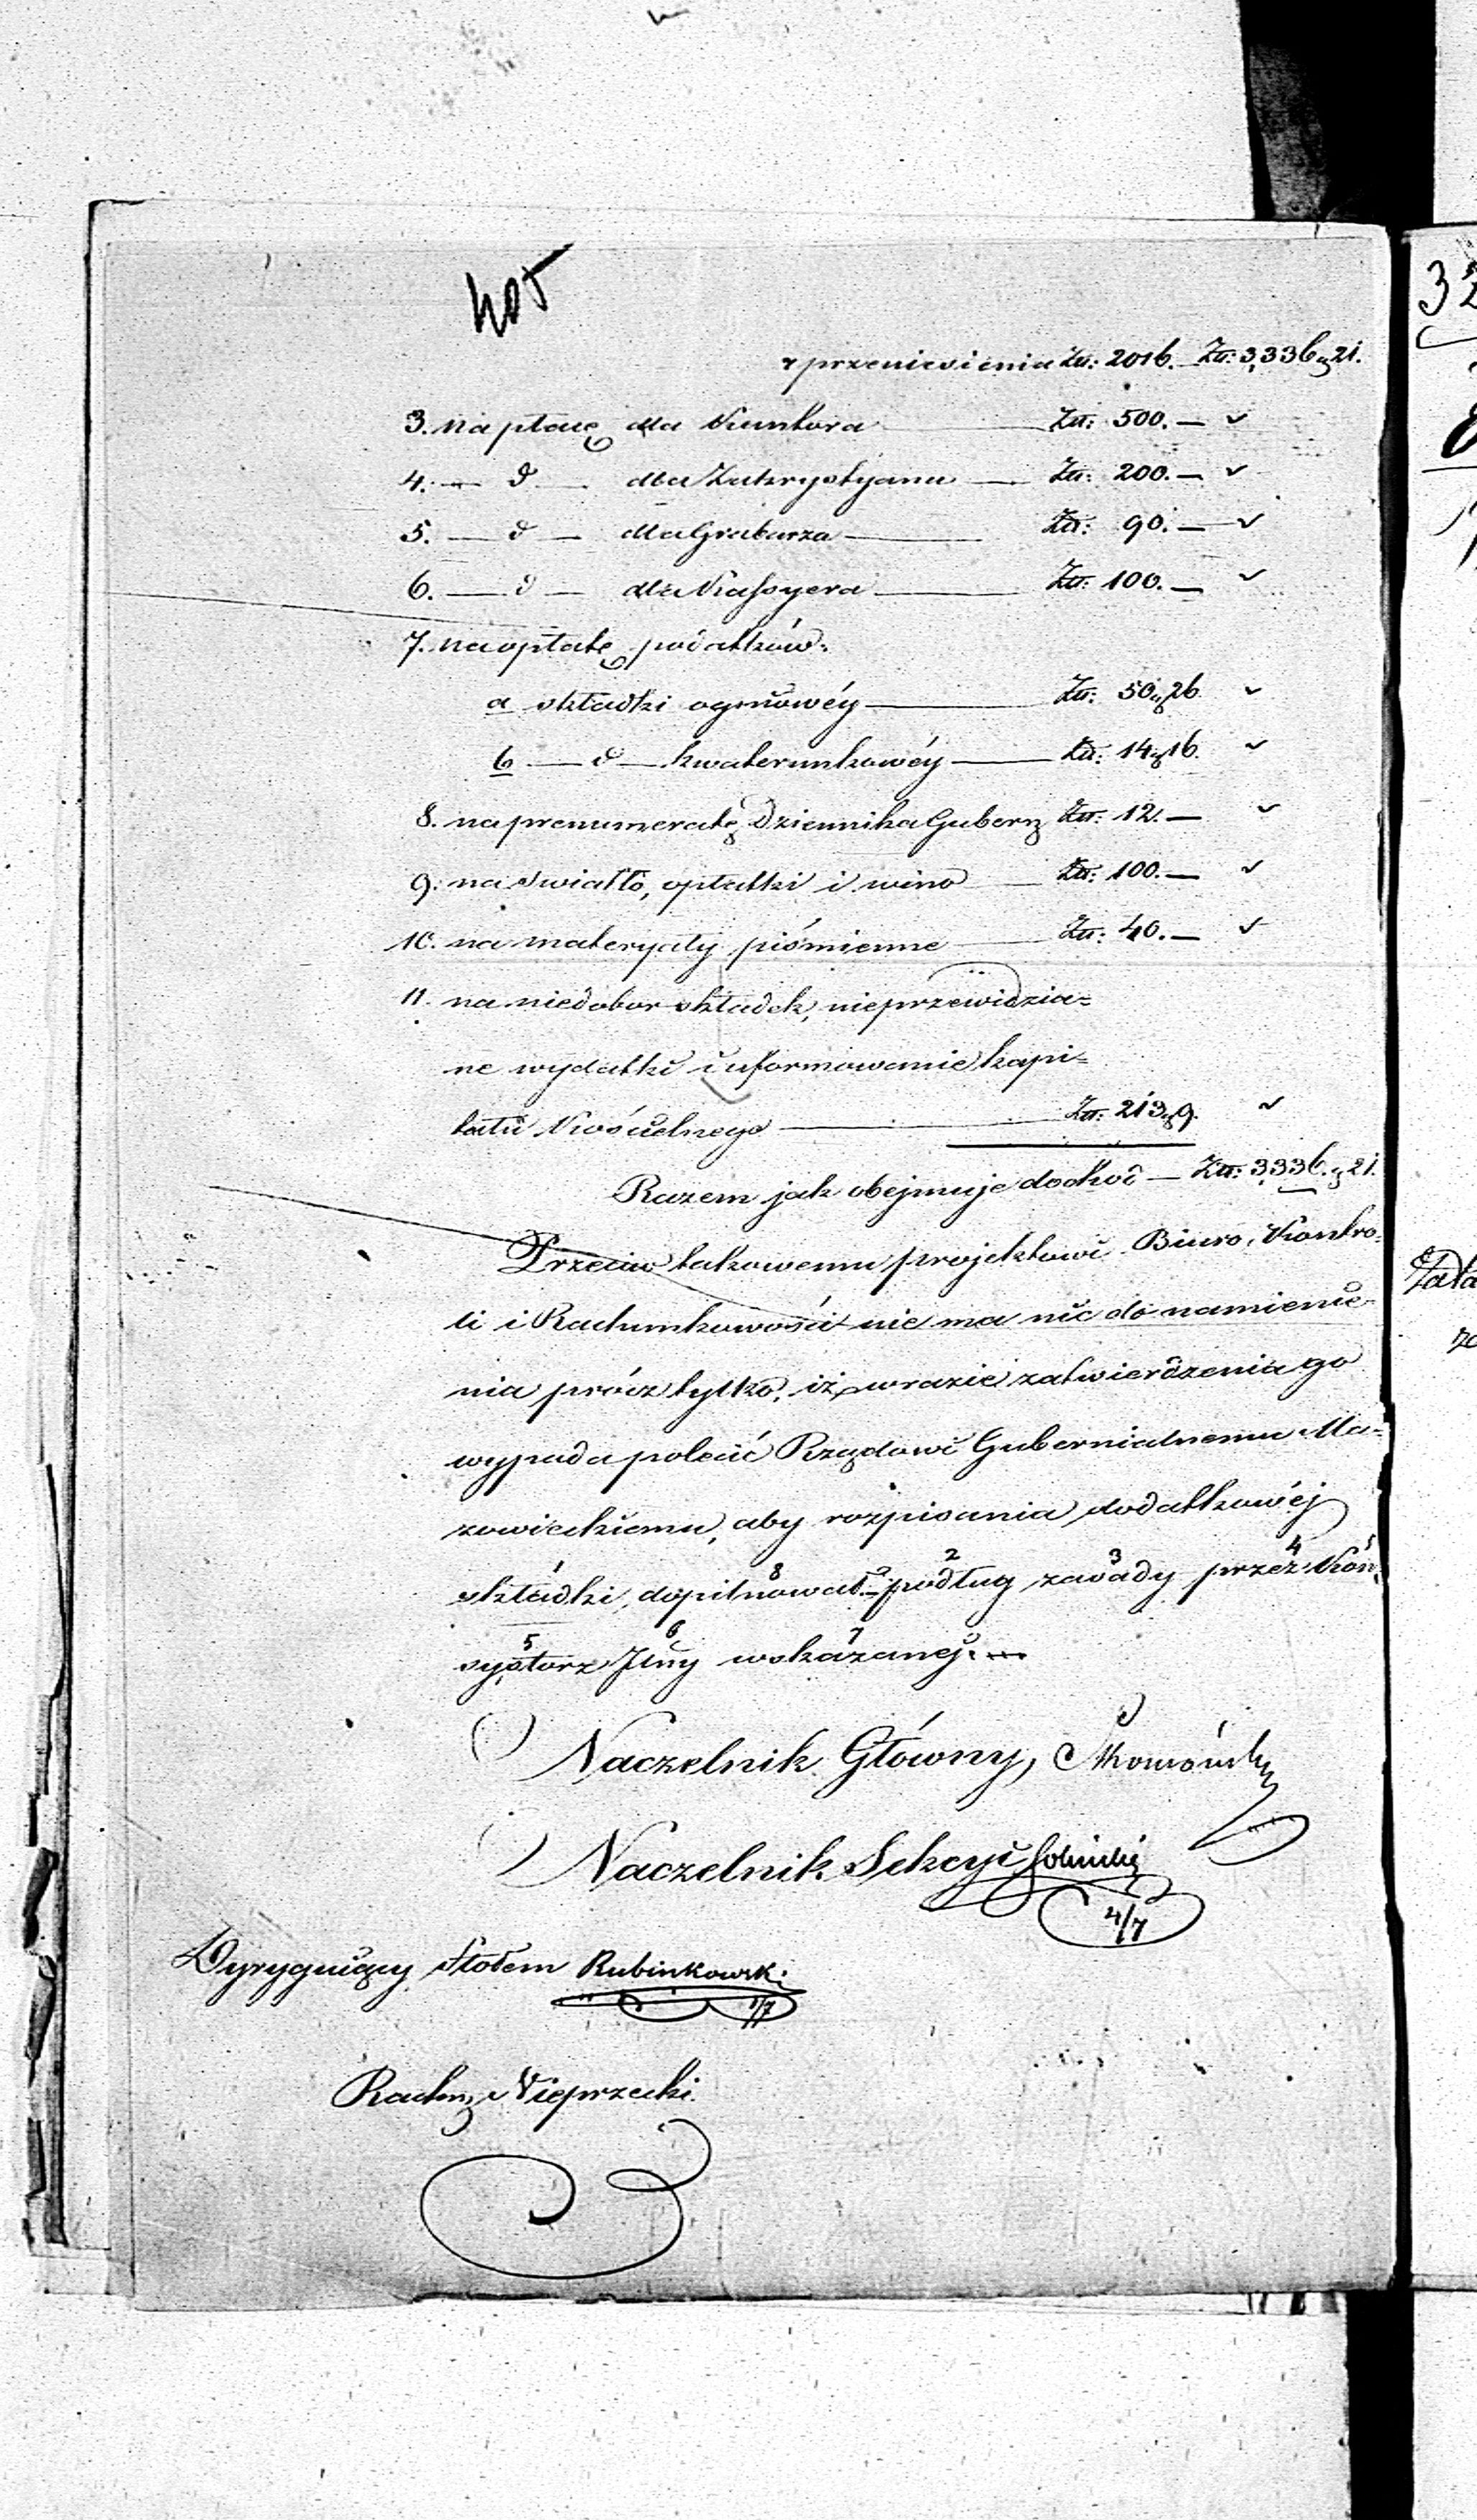 z przeniesienia Złł: 2016. — Złł: 3,336 g 21.
3. na płacę dla Kantora — Złł: 500. —
4. — d — dla Zakrystyana — Złł: 200. —
5. — d — dla Grabarza — Złł: 90. —
6. — d — dla Kassyera — Złł: 100. —
7. na opłatę podatków:
a składki ogniowéy — Złł: 50 g 26.
b — d — kwaterunkowéy — Złł: 14 g 16.
8. na prenumeratę Dziennika Gubern Złł: 12. —
9. na swiatło, opłatki i wino — Złł: 100. —
10. na materyały piśmienne — Złł: 40. —
11. na niedobor składek, nieprzewidzia=
ne wydatki i uformowanie kapi=
tału Kościelnego — Złł: 213 g 9.
Razem jak obejmuje dochód — Złł: 3,336. g 21.
Przeciw takowemu projektowi Biuro Kontro=
li i Rachunkowości nie ma nic do namienie=
nia prócz tylko, iż w razie zatwierdzenia go
wypada polecić Rządowi Gubernialnemu Ma=
zowieckiemu, aby rozpisania dodatkowéj
1 8 2 3 4
składki, dopilnował podług zasady przez Kon=
5 6 7
systorz Jlny wskazanej. —
Naczelnik Główny,
Naczelnik Sekcyi
4/7
Dyrygujący Stołem Rubinkowski
1/7
Rachm Nieprzecki
32